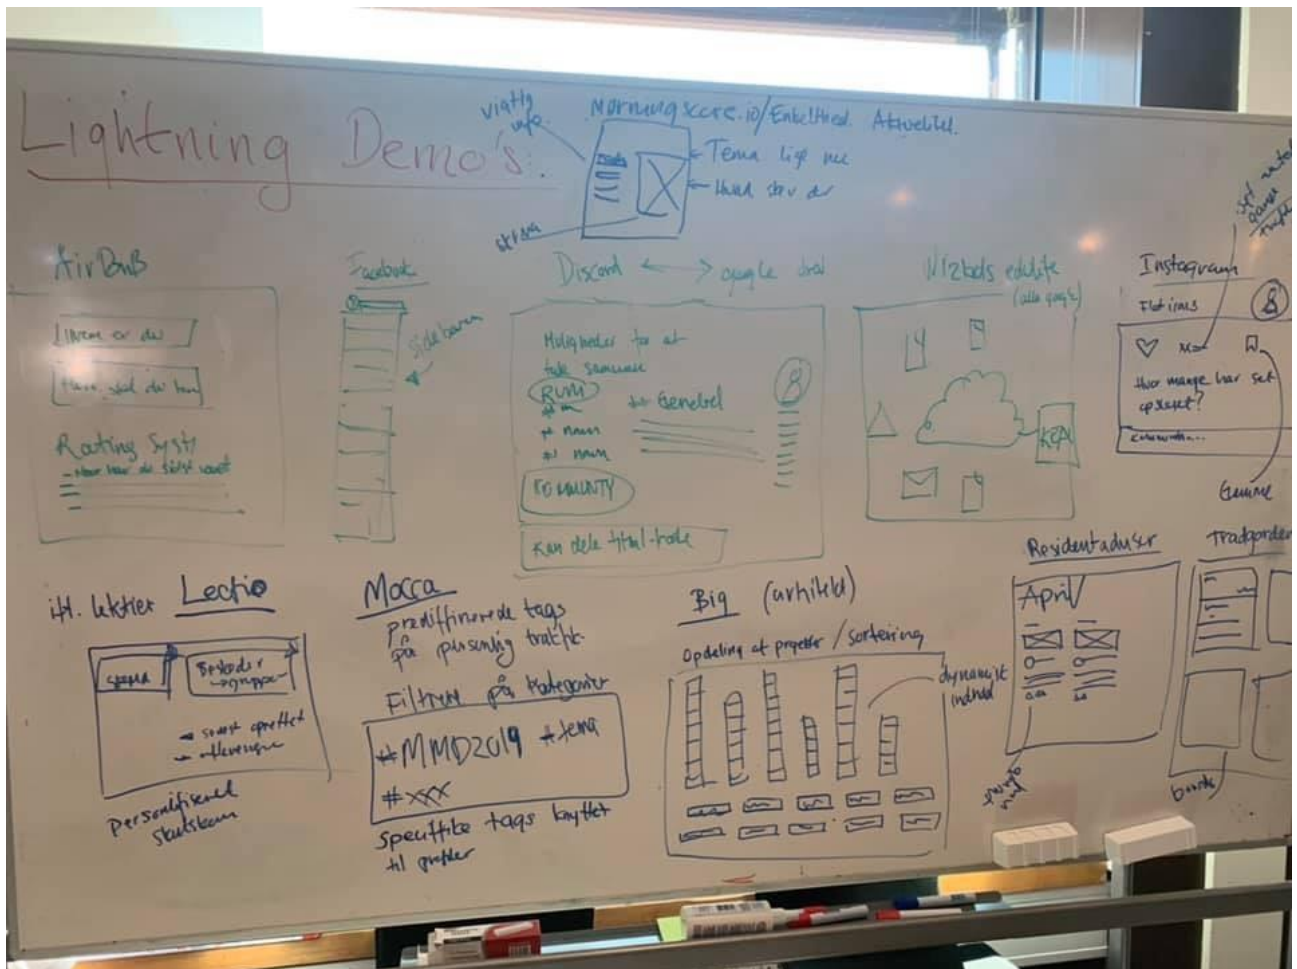 Lightning Demo's:
vigtig
info.
Morningscore.io/Enkelthed. Aktualitet.
← Tema lige nu
← Hvad sker der
AirBnB
Hvor er du
Hvor skal du hen
Routing Syst
- Hvor har du sidst været
Facebook
sidebaren
Discord ↔ google drev
Muligheder for at
tale sammen
RUM
## Generel
# mmm
# mmm
KOMMUNITY
Kan dele titml-kode
Wizbots edulife
(alle google)
KEA
Instagram
Flotims
Hvor mange har set
opslaget?
Gemme
itl. lektier Lectio
Beskeder
→ grupper
senest oprettet
afleveringer
Personlifiseret
startskærm
Mocca
prædiffinerede tags
på personlig trafik
Filtrere på kategorier
#MMD2019 #tema
#xxx
Speciffike tags knyttet
til profiler
Big (arkitekt)
Opdeling af projekter / sortering
dynamisk
indhold
Residentadviser
April
Tradgarden